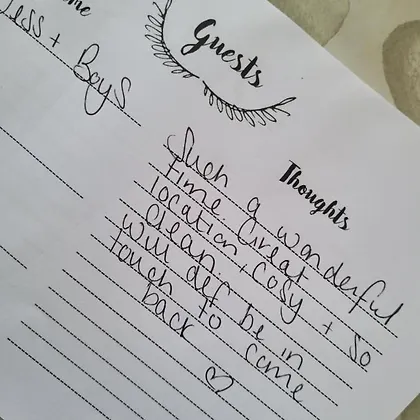 Guests
ess + Boys
Thoughts
Such a wonderful
time. Great
location + cosy + so
clean.
Will def be in
touch to come
back ♡